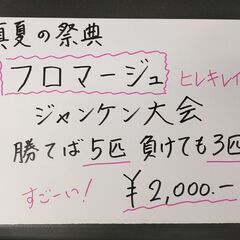 真夏の祭典
フロマージュ ヒレキレイ
ジャンケン大会
勝てば5匹 負けても3匹
すごーい! ¥2,000.-